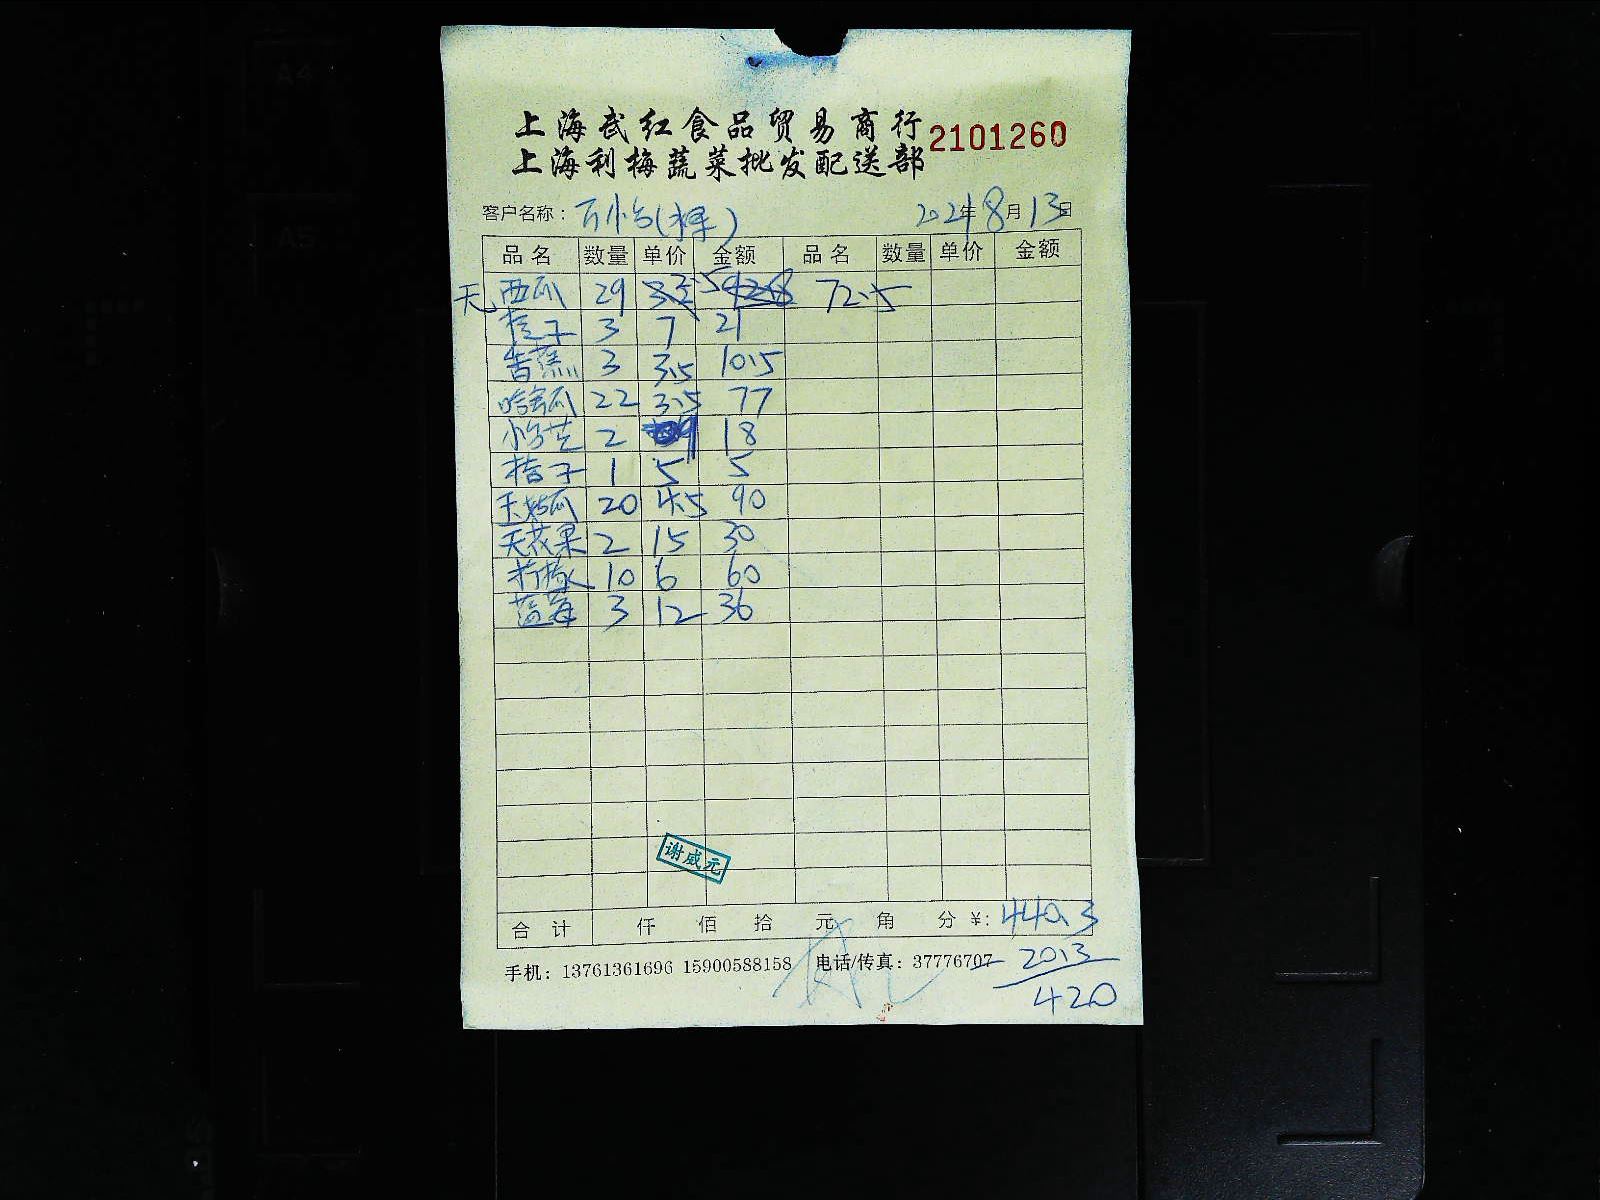 上海武红食品贸易商行
上海利梅蔬菜批发配送部
2101260
客户名称: 万小白(水果) 2021年8月13日
品名 数量 单价 金额 品名 数量 单价 金额
天 西瓜 29 2.5 72.5
橙子 3 7 21
香蕉 3 3.5 10.5
哈密瓜 22 3.5 77
2 9 18
桔子 1 5 5
玉姑瓜 20 4.5 90
无花果 2 15 30
柠檬 10 6 60
蓝莓 3 12 36
谢威元
合计 仟 佰 拾 元 角 分 ¥: 440.3
手机: 13761361696 15900588158 电话/传真: 37776707
- 20.3
420